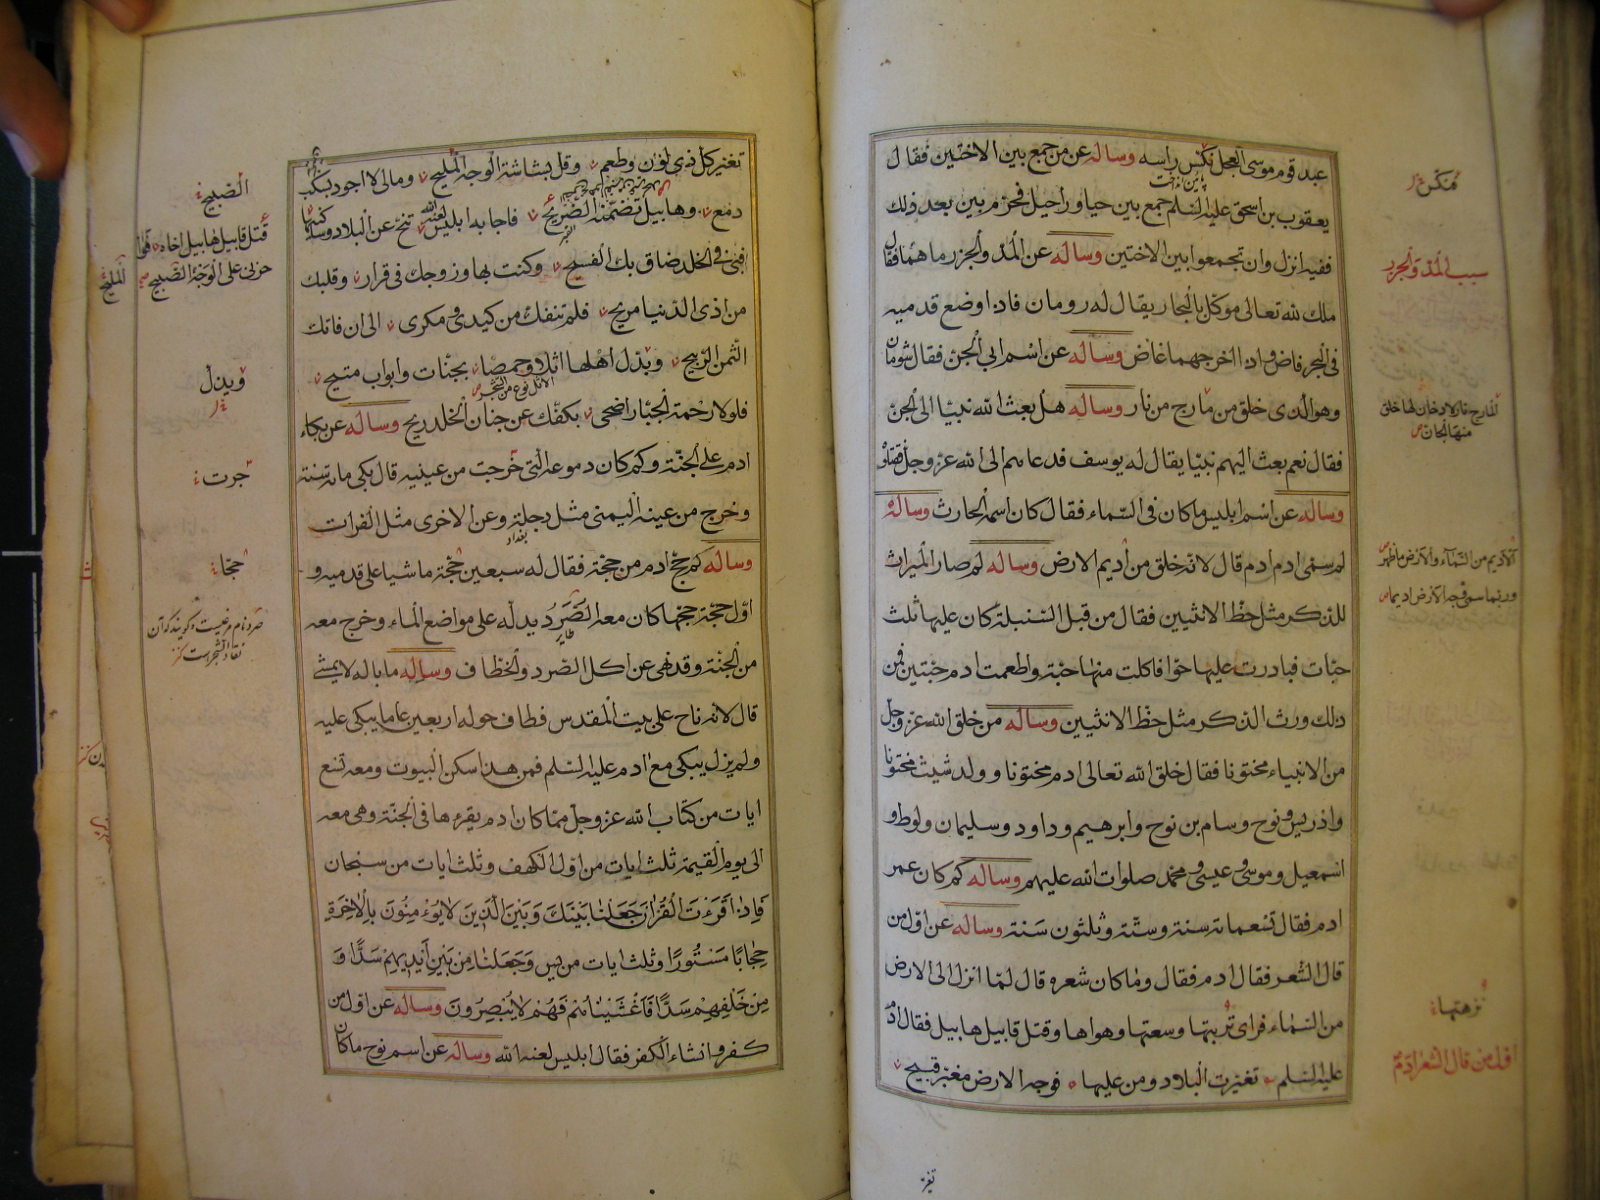 عبد قوم موسى العجل نكس راسه وساله عن من جمع بين الاختين فقال
يعقوب بن اسحق عليه السلم جمع بين حيا وراحيل فحرم بين بعد ذلك
ففيه انزل وان تجمعوا بين الاختين وساله عن المد والجزر ما هما فقال
ملك لله تعالى موكل بالبحار يقال له رومان فاذا وضع قدميه
فى البحر فاض واذا اخرجهما غاض وساله عن اسم ابى الجن فقال شومان
وهو الذى خلق من مارج من نار وساله هل بعث الله نبيا الى الجن
فقال نعم بعث اليهم نبيا يقال له يوسف فدعاهم الى الله عز وجل فقتلوه
وساله عن اسم ابليس ما كان فى السماء فقال كان اسمه الحارث وساله
لم سمى ادم ادم قال لانه خلق من اديم الارض وساله لم صار الميراث
للذكر مثل حظ الانثيين فقال من قبل السنبلة كان عليها ثلث
حبات فبادرت عليها حوا فاكلت منها حبة واطعمت ادم حبتين فمن
ذلك ورث الذكر مثل حظ الانثيين وساله من خلق الله عز وجل
من الانبياء مختونا فقال خلق الله تعالى ادم مختونا وولد شيث مختونا
واذريس ونوح وسام بن نوح وابرهيم وداود وسليمان ولوط و
اسمعيل وموسى وعيسى ومحمد صلوات الله عليهم وساله كم كان عمر
ادم فقال تسعمائة سنة وستة وثلثون سنة وساله عن اول من
قال الشعر فقال ادم فقال وما كان شعره قال لما انزل الى الارض
من السماء فراى تربتها وسعتها وهواها وقتل قابيل هابيل فقال ادم
عليه السلم تغيرت البلاد ومن عليها فوجه الارض مغبر قبيح
تغير
منكس
سبب المد والجزر
المارج نار لا دخان لها خلق
منها الجان
الاديم من السماء والارض ما ظهر
وربما سمى وجه الارض اديما
نزهتها
اول من قال الشعر ادم
تغير كل ذى لون وطعم وقل بشاشة الوجه المليح ومالى لا اجود بسكب
دمع وهابيل تضمنه الضريح فاجابه ابليس لعنه الله تنح عن البلاد وساكنيها
فبى فى الخلد ضاق بك الفسيح وكنت بها وزوجك فى قرار وقلبك
من اذى الدنيا مريح فلم تنفك من كيدى ومكرى الى ان فاتك
الثمن الربيح وبدل اهلها اثلا وحمصا بجنات وابواب متيح
الاثل نوع من الشجر
فلولا رحمة الجبار اضحى بكفك عن جنان الخلد ريح وساله عن بكاء
ادم على الجنة وكم كان دموعه التى خرجت من عينيه قال بكى مائة سنة
وخرج من عينه اليمنى مثل دجلة وعن الاخرى مثل الفرات
بغداد
وساله كم حج ادم من حجة فقال له سبعين حجة ماشيا على قدميه و
اول حجة حجها كان معه الصرد يدله على مواضع الماء وخرج معه
من الجنة وقد نهى عن اكل الصرد والخطاف وساله ما باله لا يمشى
قال لانه ناح على بيت المقدس فطاف حوله اربعين عاما يبكى عليه
ولم يزل يبكى مع ادم عليه السلم فمن هذا سكن البيوت ومعه تسع
ايات من كتاب الله عز وجل مما كان ادم يقرءها فى الجنة وهى معه
الى يوم القيمة ثلث ايات من اول الكهف وثلث ايات من سبحان
فَاِذا قَرَءْتَ الْقُرْانَ جَعَلْنا بَيْنَكَ وَبَيْنَ الَّذينَ لا يُؤْمِنُونَ بِالْاخِرَةِ
حِجابًا مَسْتُورًا وثلث ايات من يس وَجَعَلْنا مِنْ بَيْنِ اَيْديهِمْ سَدًّا وَ
مِنْ خَلْفِهِمْ سَدًّا فَاَغْشَيْناهُمْ فَهُمْ لا يُبْصِرُونَ وساله عن اول من
كفر وانشاء الكفر فقال ابليس لعنه الله وساله عن اسم نوح ما كان
الصبيح
قتل قابيل هابيل اخاه فوا
حزنى على الوجه الصبيح
المليح
وبدل
جرت
حجة